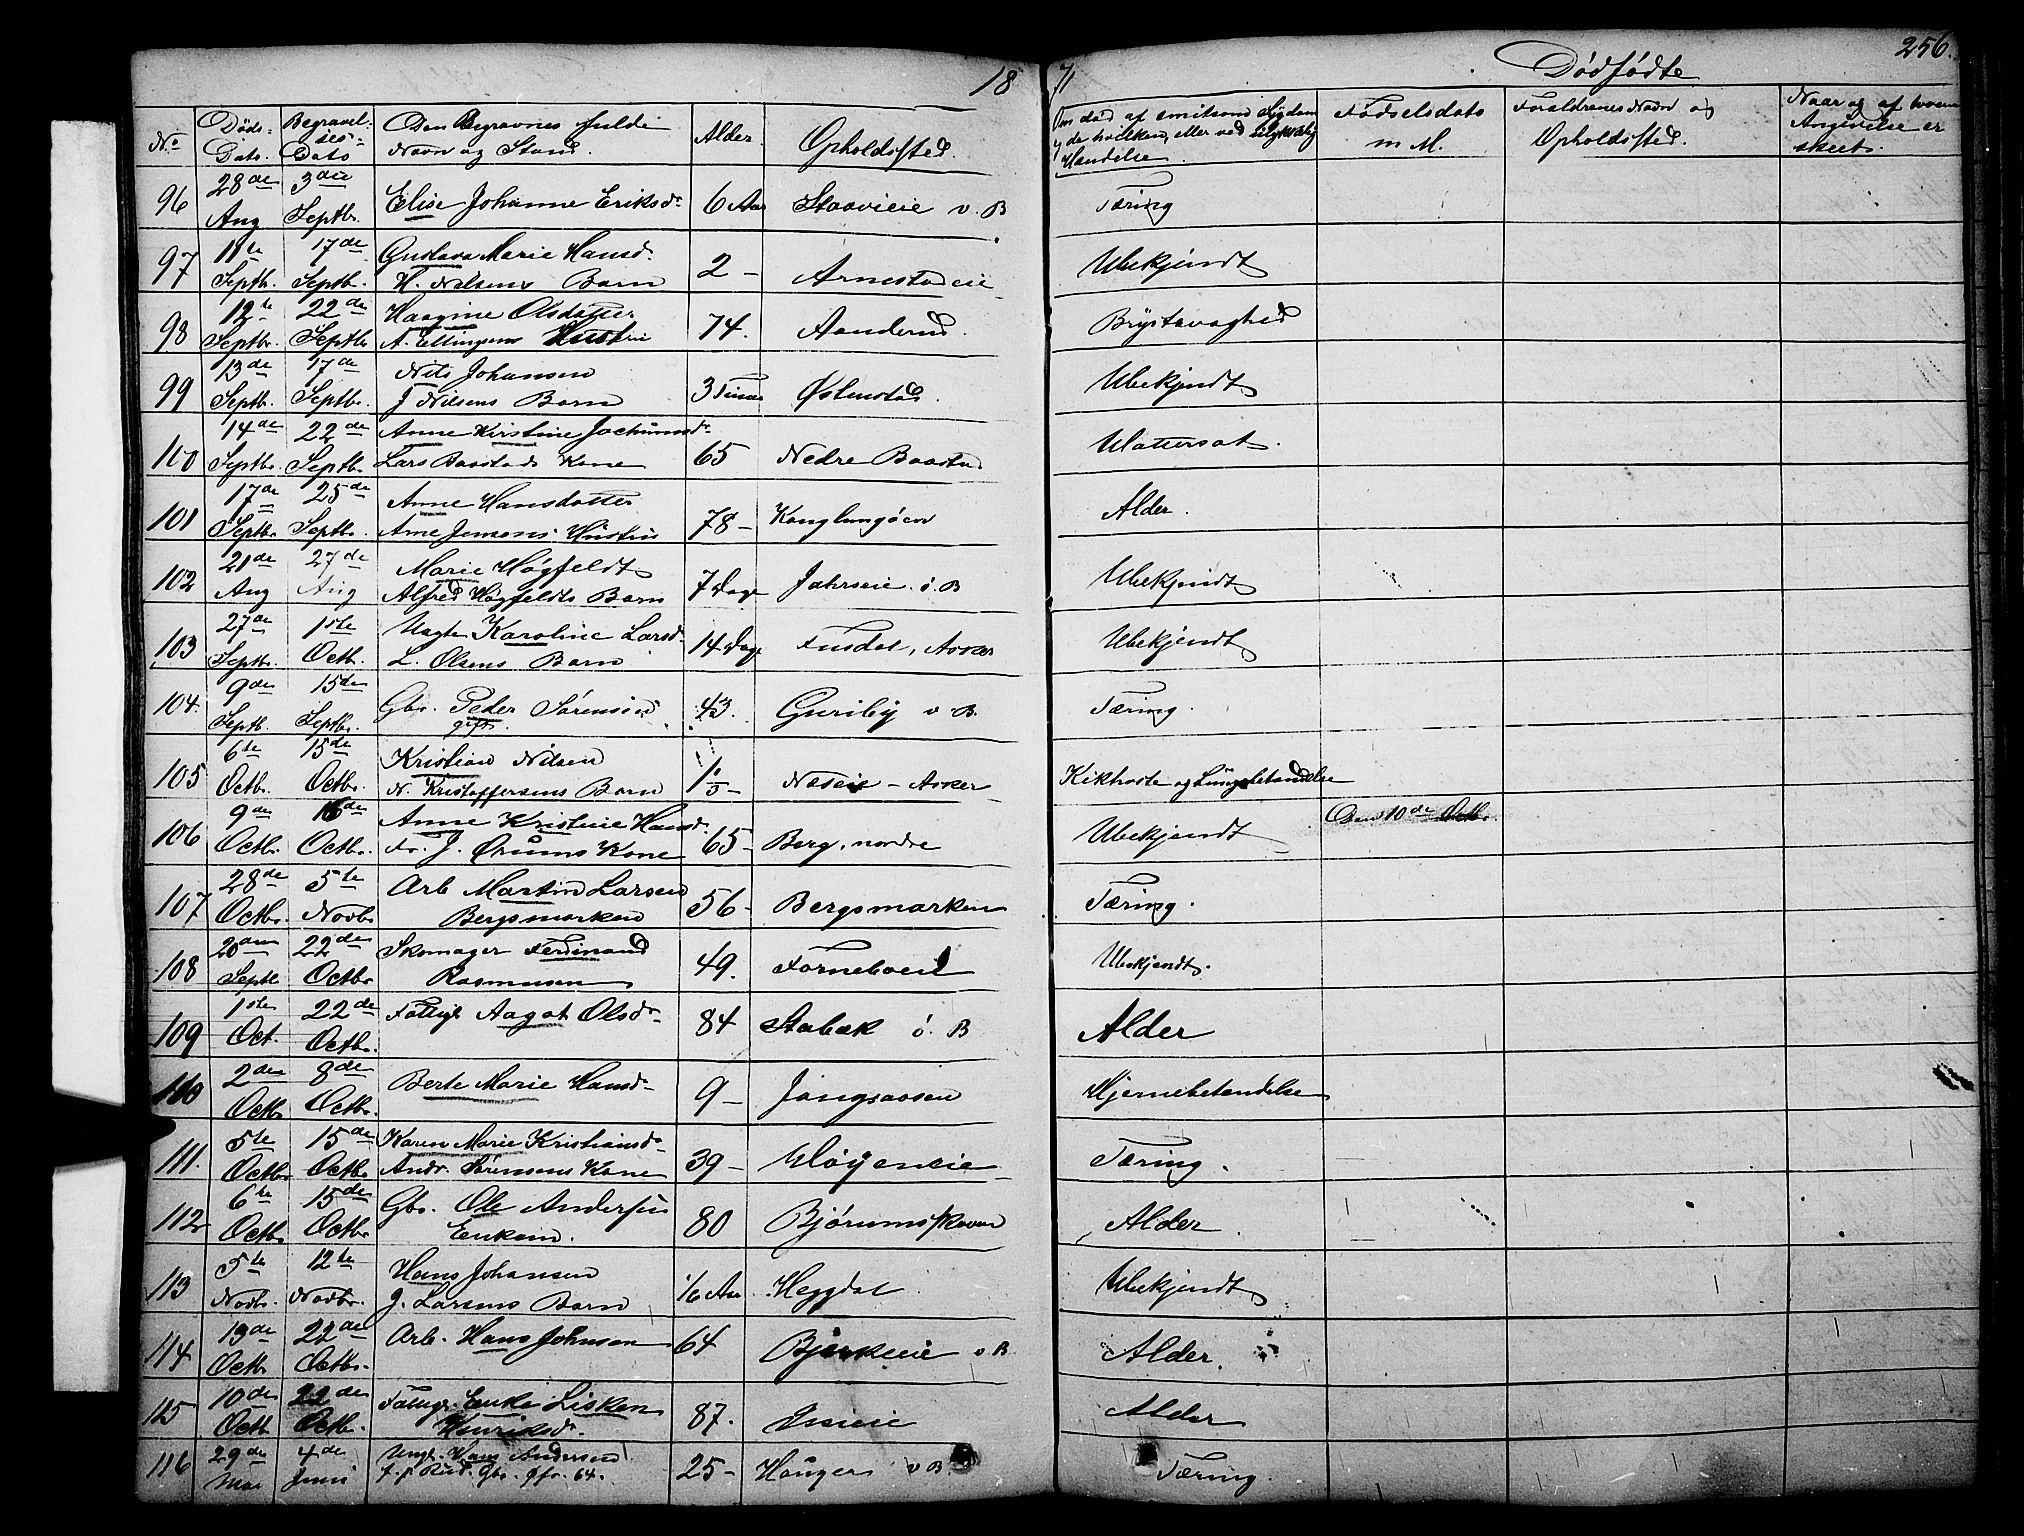 18 71 Dødfødte 256.
No Døds- Dato. Begravel- ses- Dato Den Begravnes fulde Navn og Stand. Alder. Opholdssted. Om død af smitsom Sygdom og da hvilken, eller ved Ulykkelig Hændelse. Fødselsdato m M. Forældrenes Navn og Opholdssted. Naar og af hvem Angivelse er skeet.
96 28de Aug 3die Septbr. Elise Johanne Eriksdr 6 Aar Staavieie v. B Tæring
97 11te Septb. 17de Septb. Gustava Marie Hansd.
H. Nilsens Barn 2 - Arnestadeie Ubekjendt
98 12te Septbr. 22de Septbr Haagine Olsdatter
A. Ellingsens Hustru 74. Aanderud Brystsvaghed
99 13de Septb. 17de Septb. Nils Johansen
J Nilsens Barn 3 Timer Østenstad. Ubekjendt
100 14de Septb. 22de Septb. Anne Kirstine Jochumsdr
Lars Baastads Kone 65 Nedre Baastad
101 17de Septbr. 25de Septbr. Anne Hansdatter
Arne Jensens Hustru 78 - Alder.
102 21de Aug 27de Aug Marie Høgfeldt
Alfred Høgfeldts Barn 7 Dage Jahrseie ö. B Ubekjendt
103 27de Septbr. 1ste Octb. Uægte Karoline Larsd.
L. Olsens Barn 14 Dage Fusdal, Asker Ubekjendt
104. 9de Septb. 15de Septbr. Gbr. Peder Sørensen
gift. 43. Guriby v B. Tæring.
105 6te Octb. 15de Octb. Kristian Nilsen
N. Kristoffersens Barn Næseie - Asker Kikhoste og Lungebetændelse
106 9de Octbr. 16de Octbr. Anne Kristine Hansd.
Fr. J. Kone 65 - Berg, nordre Ubekjendt Den 10de Octb.
107 28de Octbr. 5te Novb. Arb Martin Larsen
Bergsmarken 56 - Bergsmarken Tæring.
108 20de Septb 22de Octbr Skomager Ferdinand
Rasmussen 49. Forneboeie Ubekjendt.
109 1ste Oct. 22de Octbr. Fattigl Aagot Olsdr 84 Stabæk ö. B Alder
110 2den Octb. 8de Octbr. Berte Marie Hansdr 9 - Jongsaasen Hjernebetændelse
111. 5te Octbr. 15de Octbr. Karen Marie Kristiansdr
Andr. Sørensens Kone 39 - Tæring.
112 6te Octbr. 15de Octbr. Gbr. Ole Andersen
80 Bjørumskoven Alder.
113 5te Novbr. 12te Novbr. Hans Johansen
J. Larsens Barn 1/6 Aar Heggdal Ubekjendt
114 13de Octb 22de Octbr. Arb. Hans Johnsen 64 Bjerkeeie v B. Alder.
115 10de Octb 22de Octb. Fattigl. Lisken
Henriksd. 87. Alder
116 29de Mai 4de Juni Ungk. Hans Andersen
f. p. Rud. Gbr. 25 - Hauger v B. Tæring.